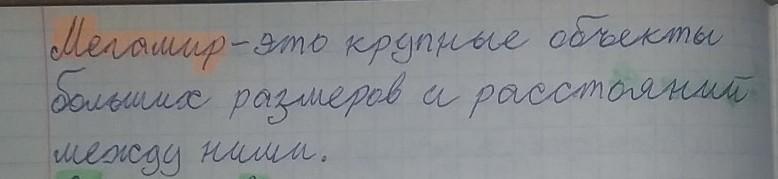 Мегамир-это крупные объекты
больших размеров и расстояний
между ними.